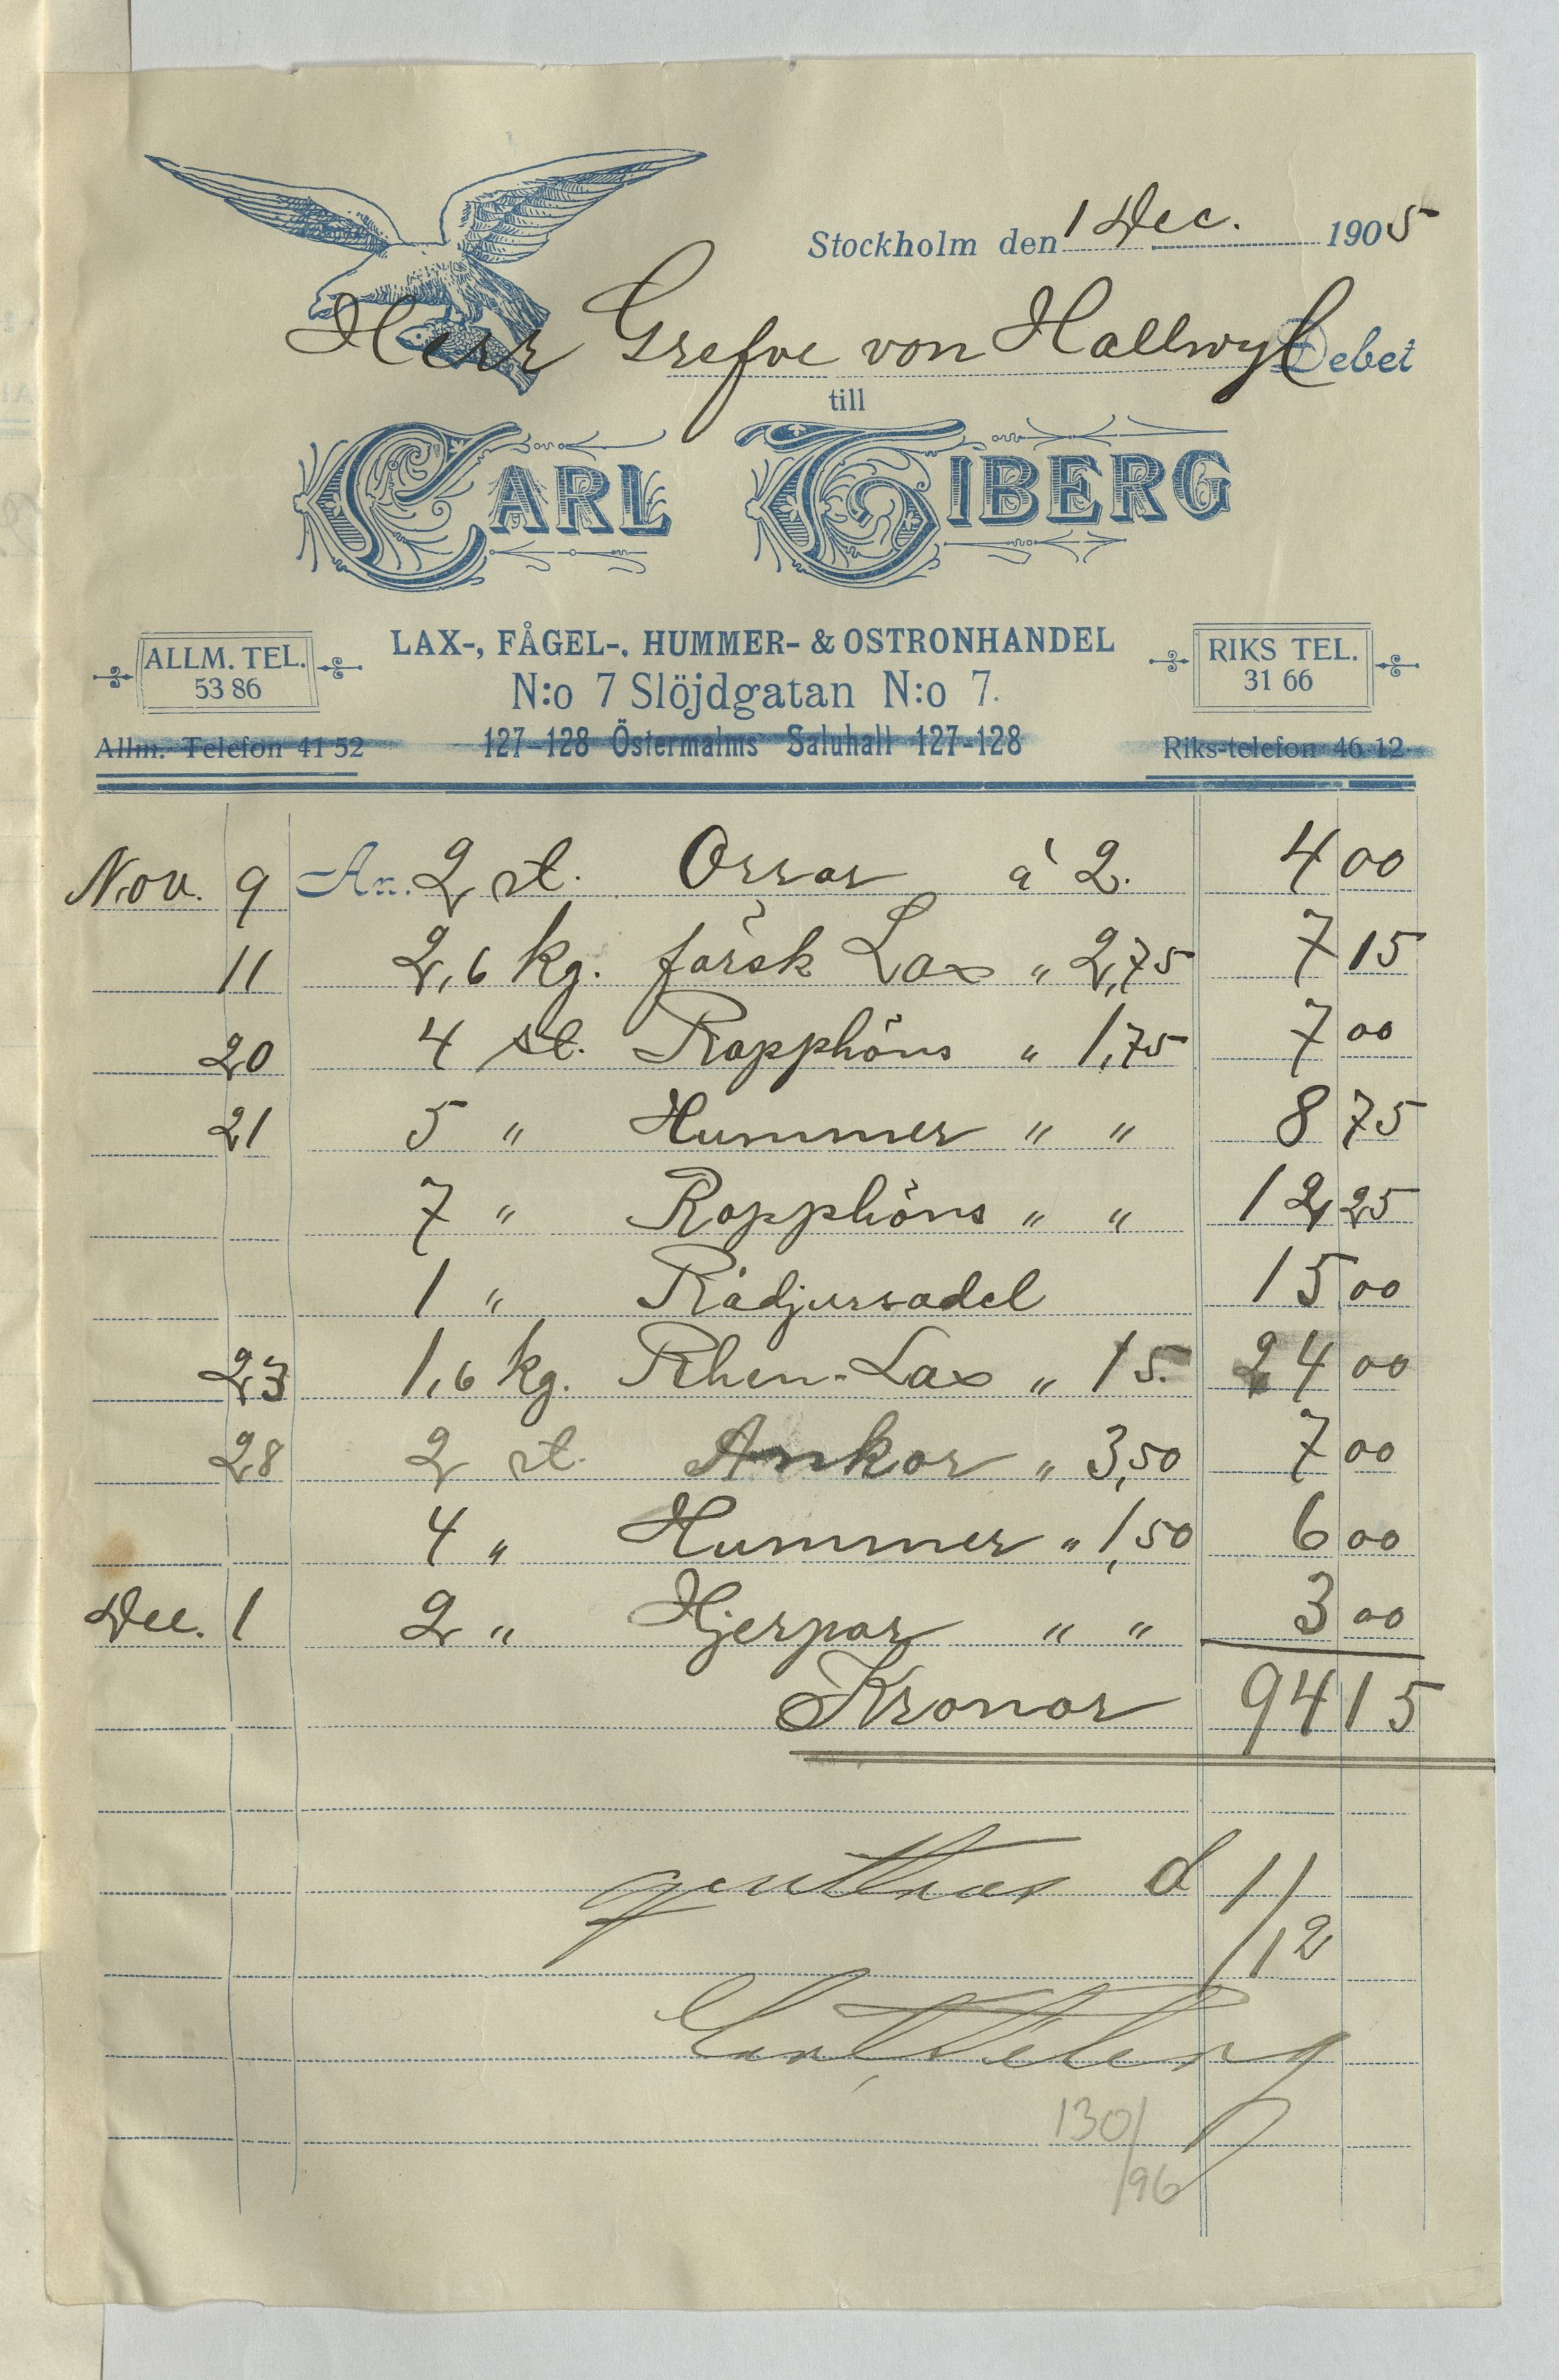 Stockholm den 1 Dec. 1905
Herr Grefve von Hallwyl Debet
till
CARL TIBERG
LAX-, FÅGEL-, HUMMER- & OSTRONHANDEL
ALLM. TEL. 53 86
N:o 7 Slöjdgatan N:o 7.
RIKS TEL. 31 66
Allm. Telefon 41 52 127-128 Östermalms Saluhall 127-128 Riks-telefon 46 12
Nov. 9 An. 2 st. Orrar à 2. 4 00
11 2,6 kg. färsk Lax " 2,75 7 15
20 4 st. Rapphöns " 1,75 7 00
21 5 " Hummer " " 8 75
7 " Rapphöns " " 12 25
1 " Rådjurssadel 15 00
23 1,6 kg. Rhen-Lax " 15. 24 00
28 2 st. Ankor " 3,50 7 00
4 " Hummer " 1,50 6 00
Dec. 1 2 " Hjerpar " " 3 00
Kronor 94 15
qvitteras d 11/12
Carl Tiberg
130/96